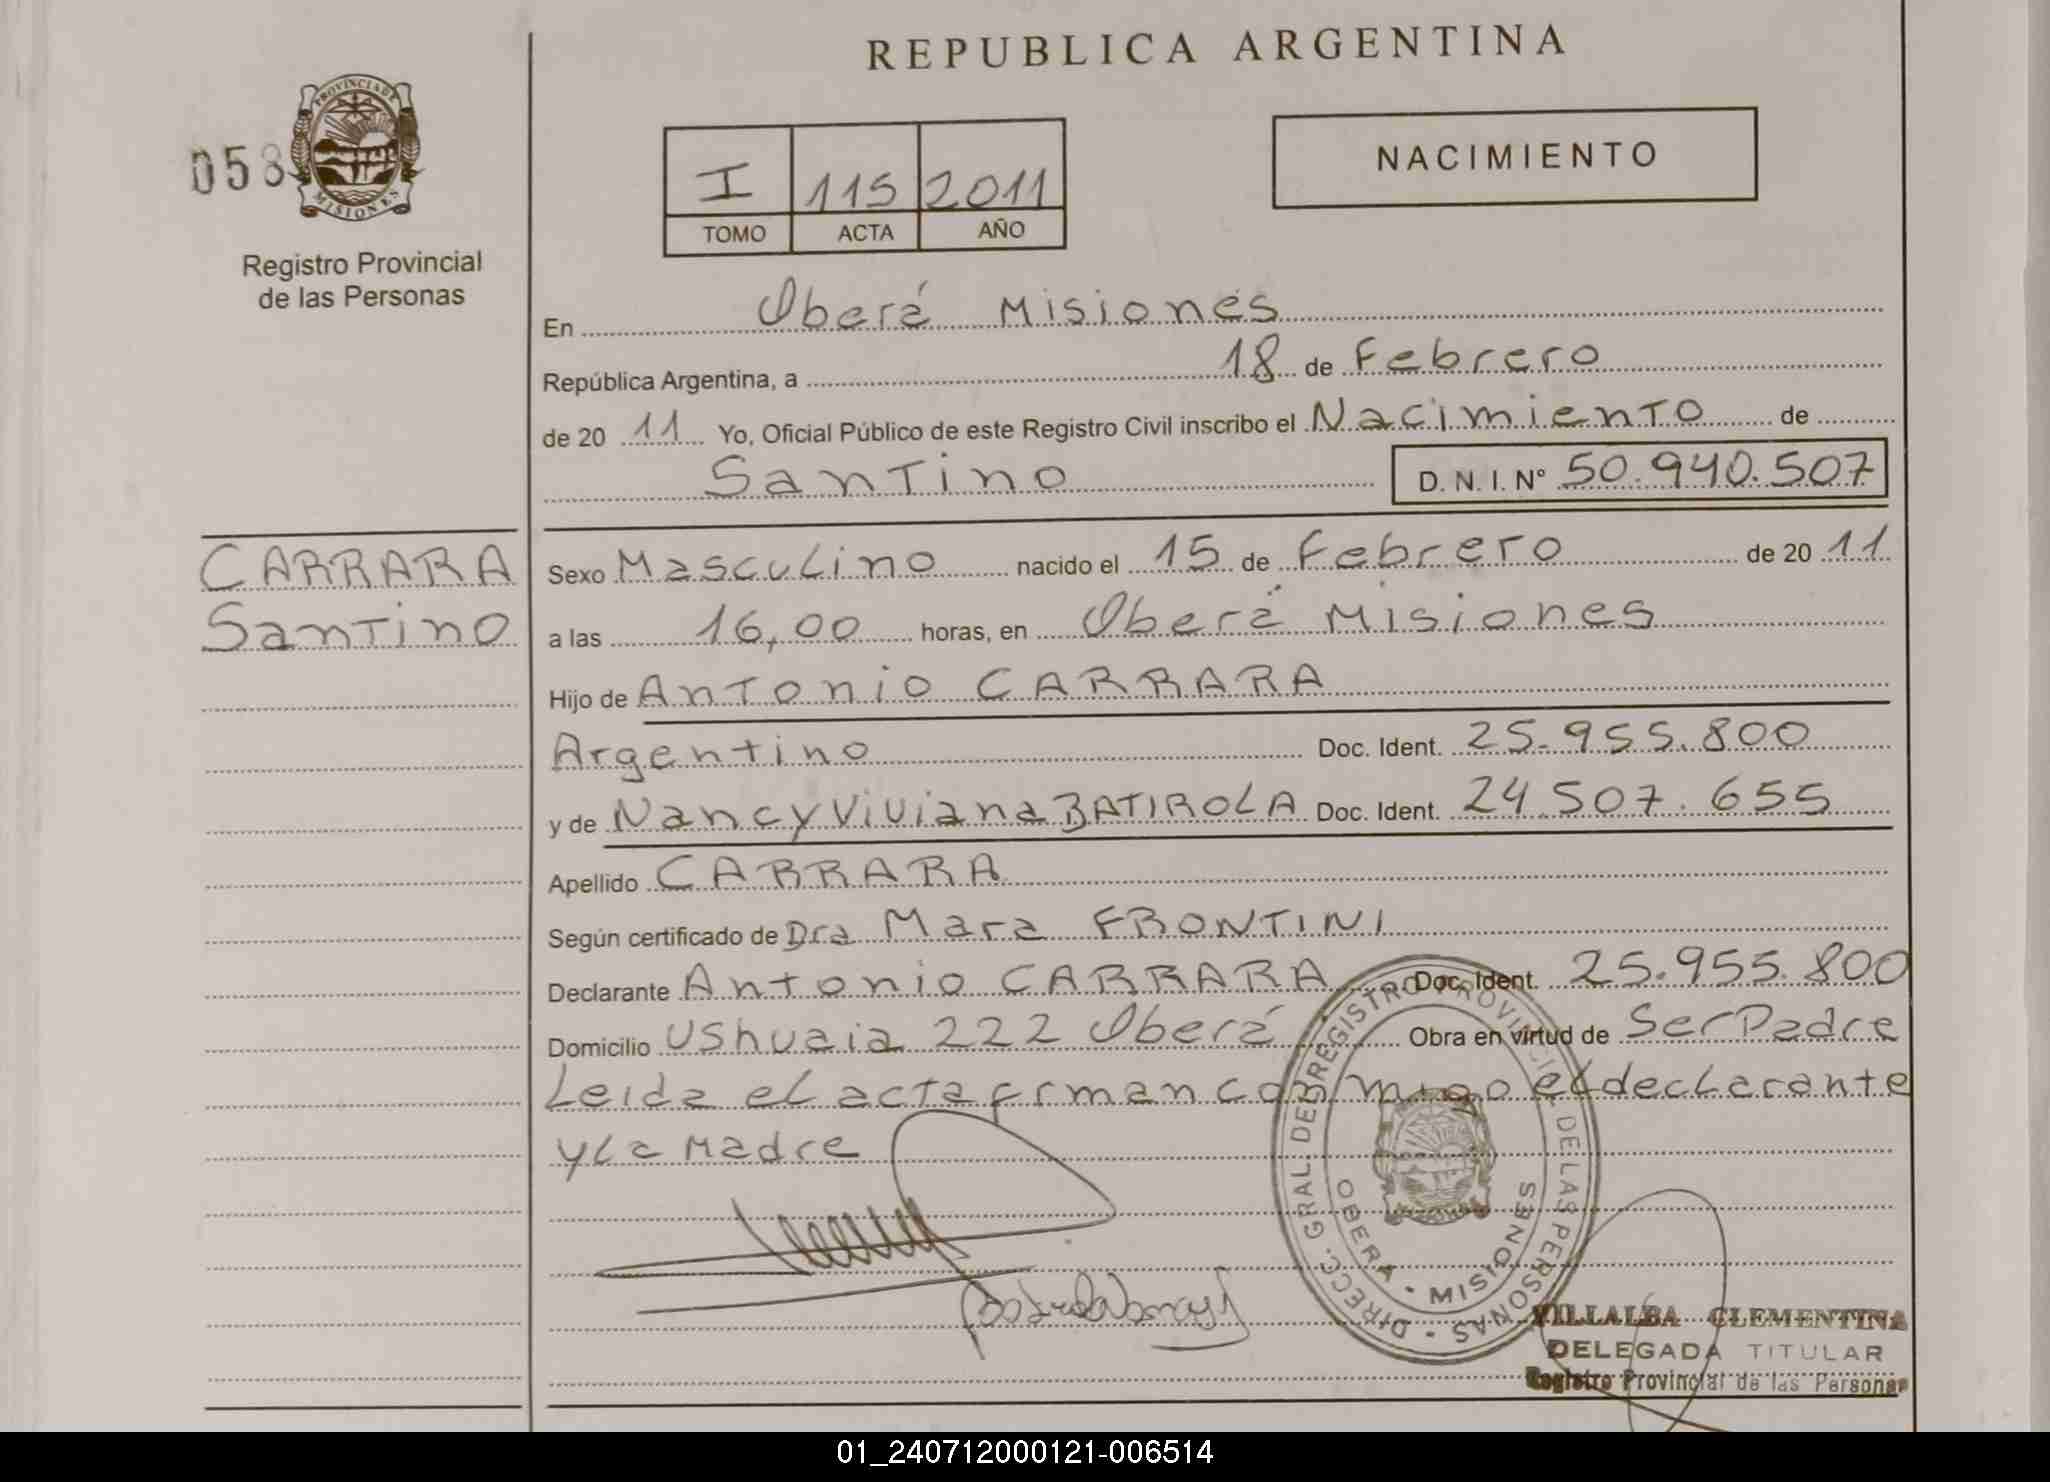 REPUBLICA ARGENTINA
058
PROVINCIA DE
MISIONES
Registro Provincial
de las Personas
I 115 2011
TOMO ACTA AÑO
NACIMIENTO
En Oberá Misiones
República Argentina, a 18 de Febrero
de 20 11 Yo, Oficial Público de este Registro Civil inscribo el Nacimiento de
Santino D. N. I. Nº 50.940.507
CARRARA
Santino
Sexo Masculino nacido el 15 de Febrero de 20 11
a las 16,00 horas, en Oberá Misiones
Hijo de Antonio CARRARA
Argentino Doc. Ident. 25.955.800
y de Nancy Viviana BATIROLA Doc. Ident. 24.507.655
Apellido CARRARA
Según certificado de Dra Mara FRONTINI
Declarante Antonio CARRARA Doc. Ident. 25.955.800
Domicilio Ushuaia 222 Oberá Obra en virtud de Ser Padre
Leida el acta frman conmigo el declarante
y la Madre
DIRECC. GRAL. DEL REGISTRO PROVINCIAL DE LAS PERSONAS
OBERA - MISIONES
VILLALBA CLEMENTINA
DELEGADA TITULAR
Registro Provincial de las Personas
01_240712000121-006514